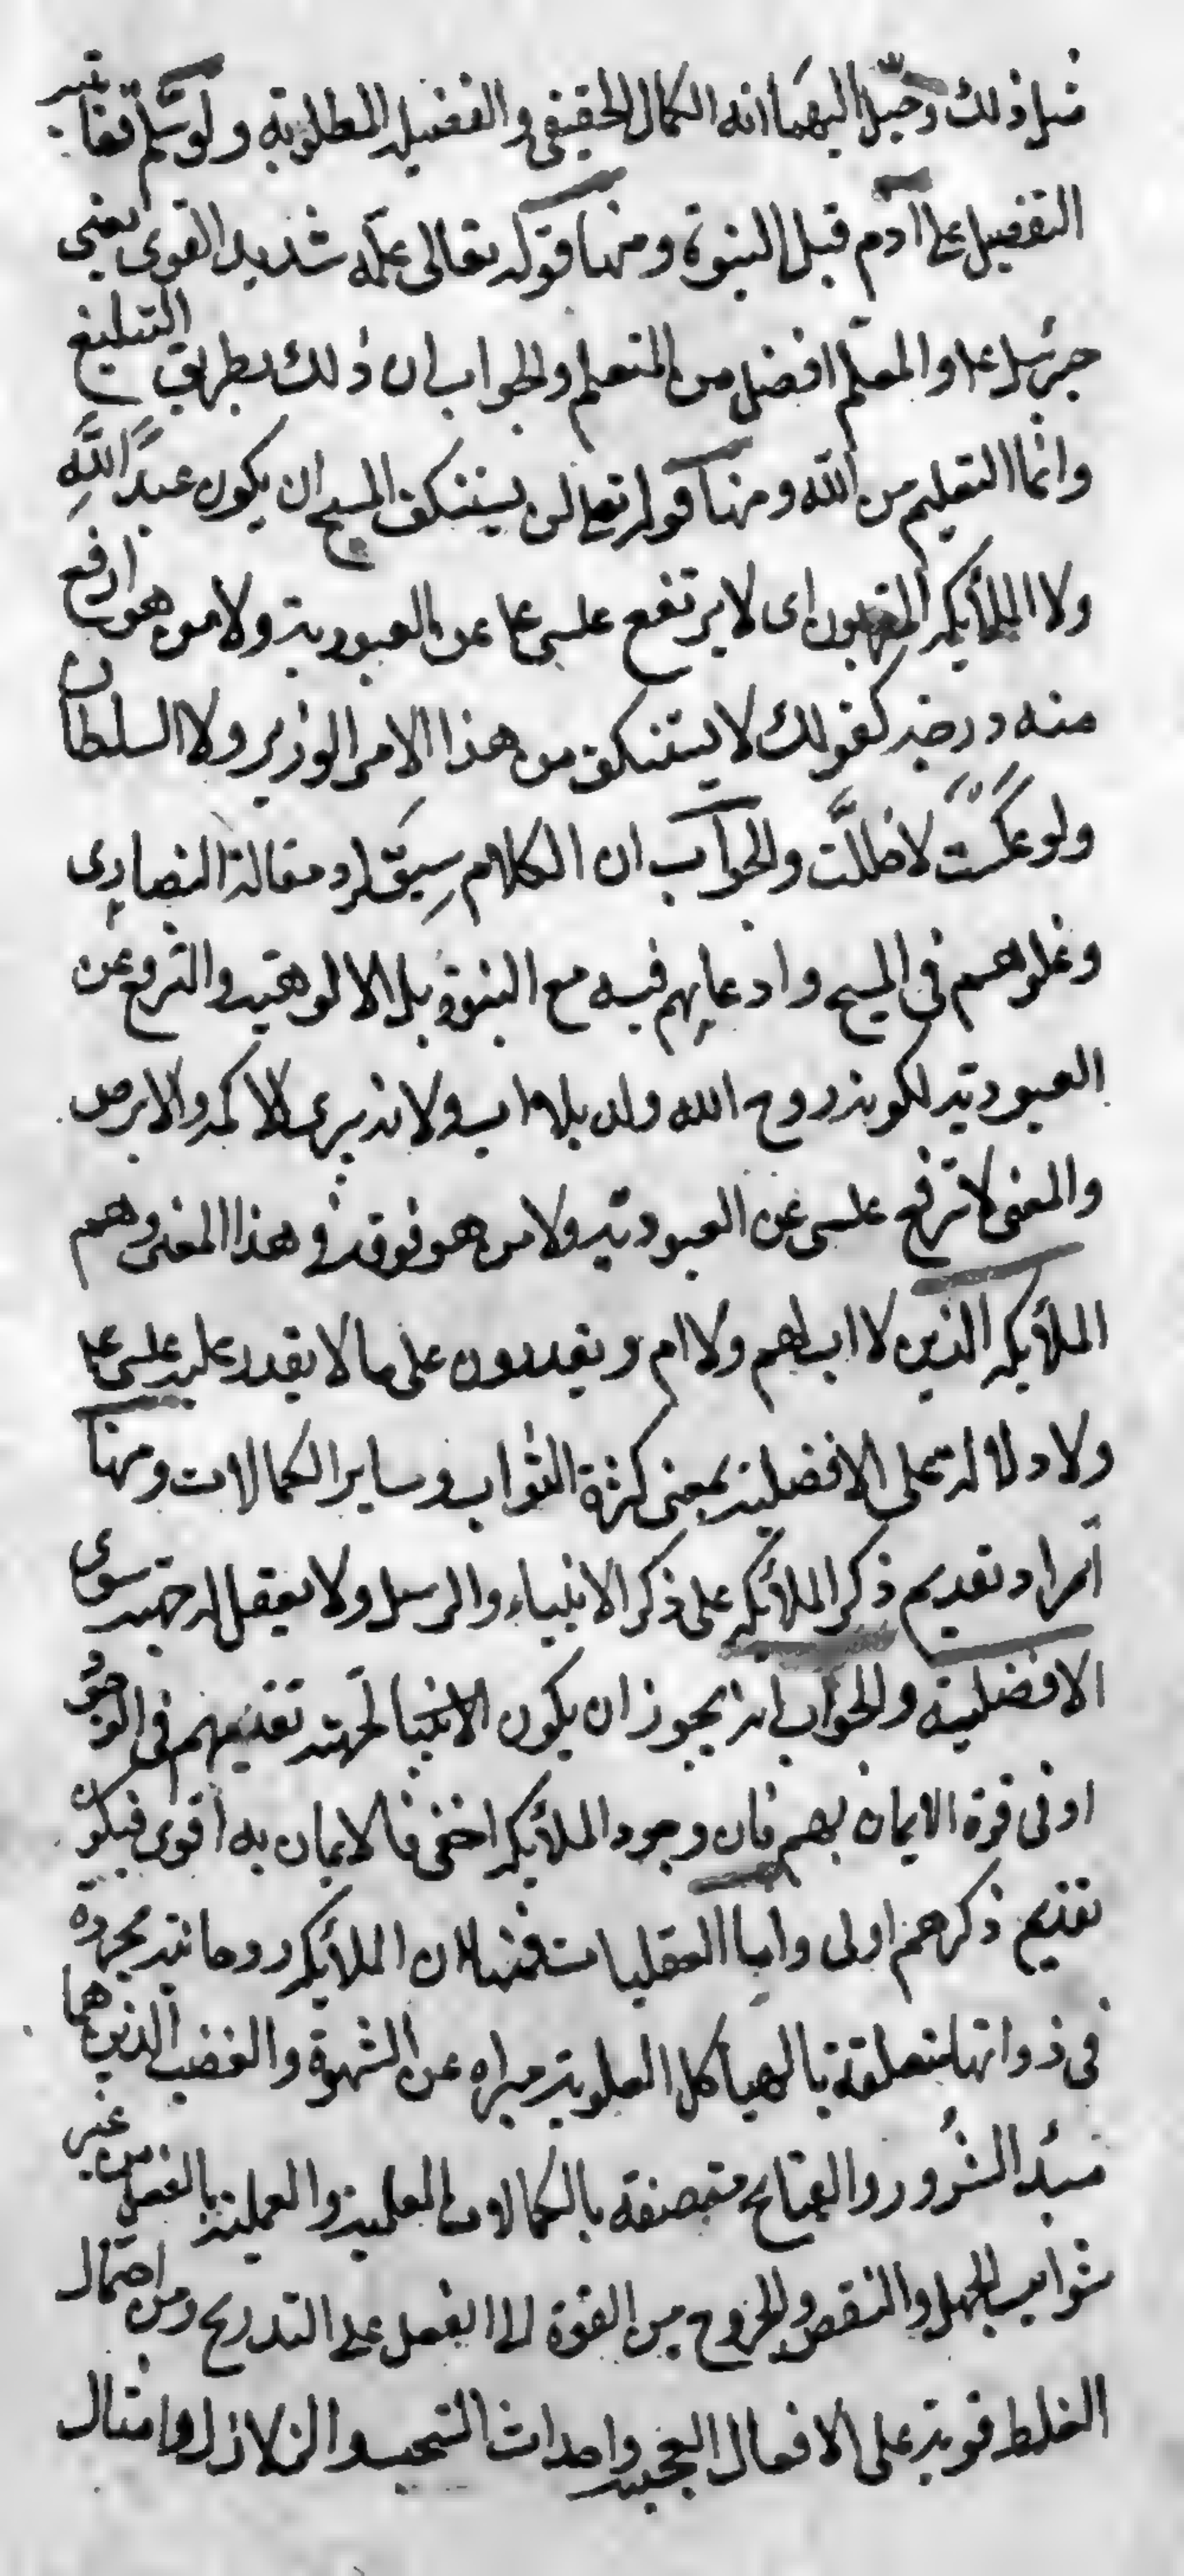 مثل ذلك وخيل اليهما انه الكمال الحقيقي والفضيلة المطلوبة ولو سلم فغايته
التفضيل على آدم قبل النبوة ومنها قوله تعالى علمه شديد القوى يعنى
جبرئيل عم والمعلم افضل من المتعلم والجواب ان ذلك بطريق التبليغ
وانما التعليم من الله ومنها قوله تعالى لن يستنكف المسيح ان يكون عبدًا لله
ولا الملائكة المقربون اى لا يرتفع عيسى عم عن العبودية ولا من هو ارفع
منه درجة كقولك لا يستنكف من هذا الامر الوزير ولا السلطان
ولو عكست لاخللت والجواب ان الكلام سيق لرد مقالة النصارى
وغلوهم فى المسيح وادعايهم فيه مع النبوة بل الالوهية والترفع عن
العبودية لكونه روح الله ولد بلا اب ولانه يبرى الاكمه والابرص
والمعنى لا ترفع عيسى عن العبودية ولا من هو فوقه فى هذا المعنى وهم
الملائكة الذين لا اب لهم ولا ام ويقدرون على ما لا يقدر عليه عيسى عم
ولا دلالة على الافضلية بمعنى كثرة الثواب وساير الكمالات ومنها
اطراد تقديم ذكر الملائكة على ذكر الانبياء والرسل ولا يعقل له جهة سوى
الافضلية والجواب انه يجوز ان يكون الانبيا لجهة تقديمهم فى الوجود
او فى قوة الايمان بهم فان وجود الملائكة اخفى فالايمان به اقوى فيكون
تقديم ذكرهم اولى واما العقليات فمنها ان الملائكة روحانية مجردة
فى ذواتها متعلقة بالهياكل العلوية مبراه عن الشهوة والغضب الذين هما
مبدٔ الشرور والقبايح متصفة بالكمالات العلمية والعملية بالفعل من غير
شوايب الجهل والنقص والخروج من القوة الى الفعل على التدريج ومن احتمال
الغلط قوية على الافعال العجيبة واحداث السحب والزلازل وامثال